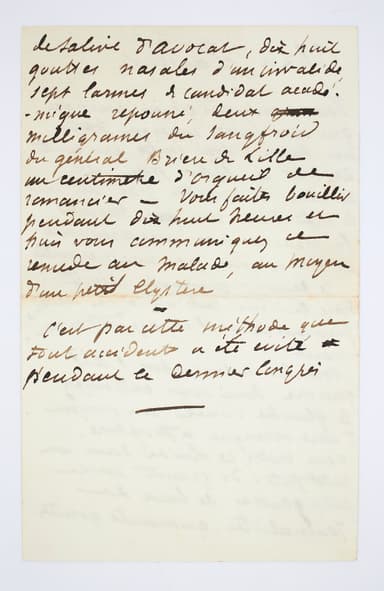 de salive d'avocat, dix huit
gouttes nasales d'un invalide,
sept larmes de candidat acadé-
-mique repoussé, deux
milligrames du sangfroid
du général Brière de Lille
un centimetre d'orgueil de
romancier — Vous faites bouillir
pendant dix huit heures et
puis vous communiquez ce
remede au malade, au moyen
d'un petit clystere
C'est par cette méthode que
tout accident a été evité
pendant le dernier Congrès